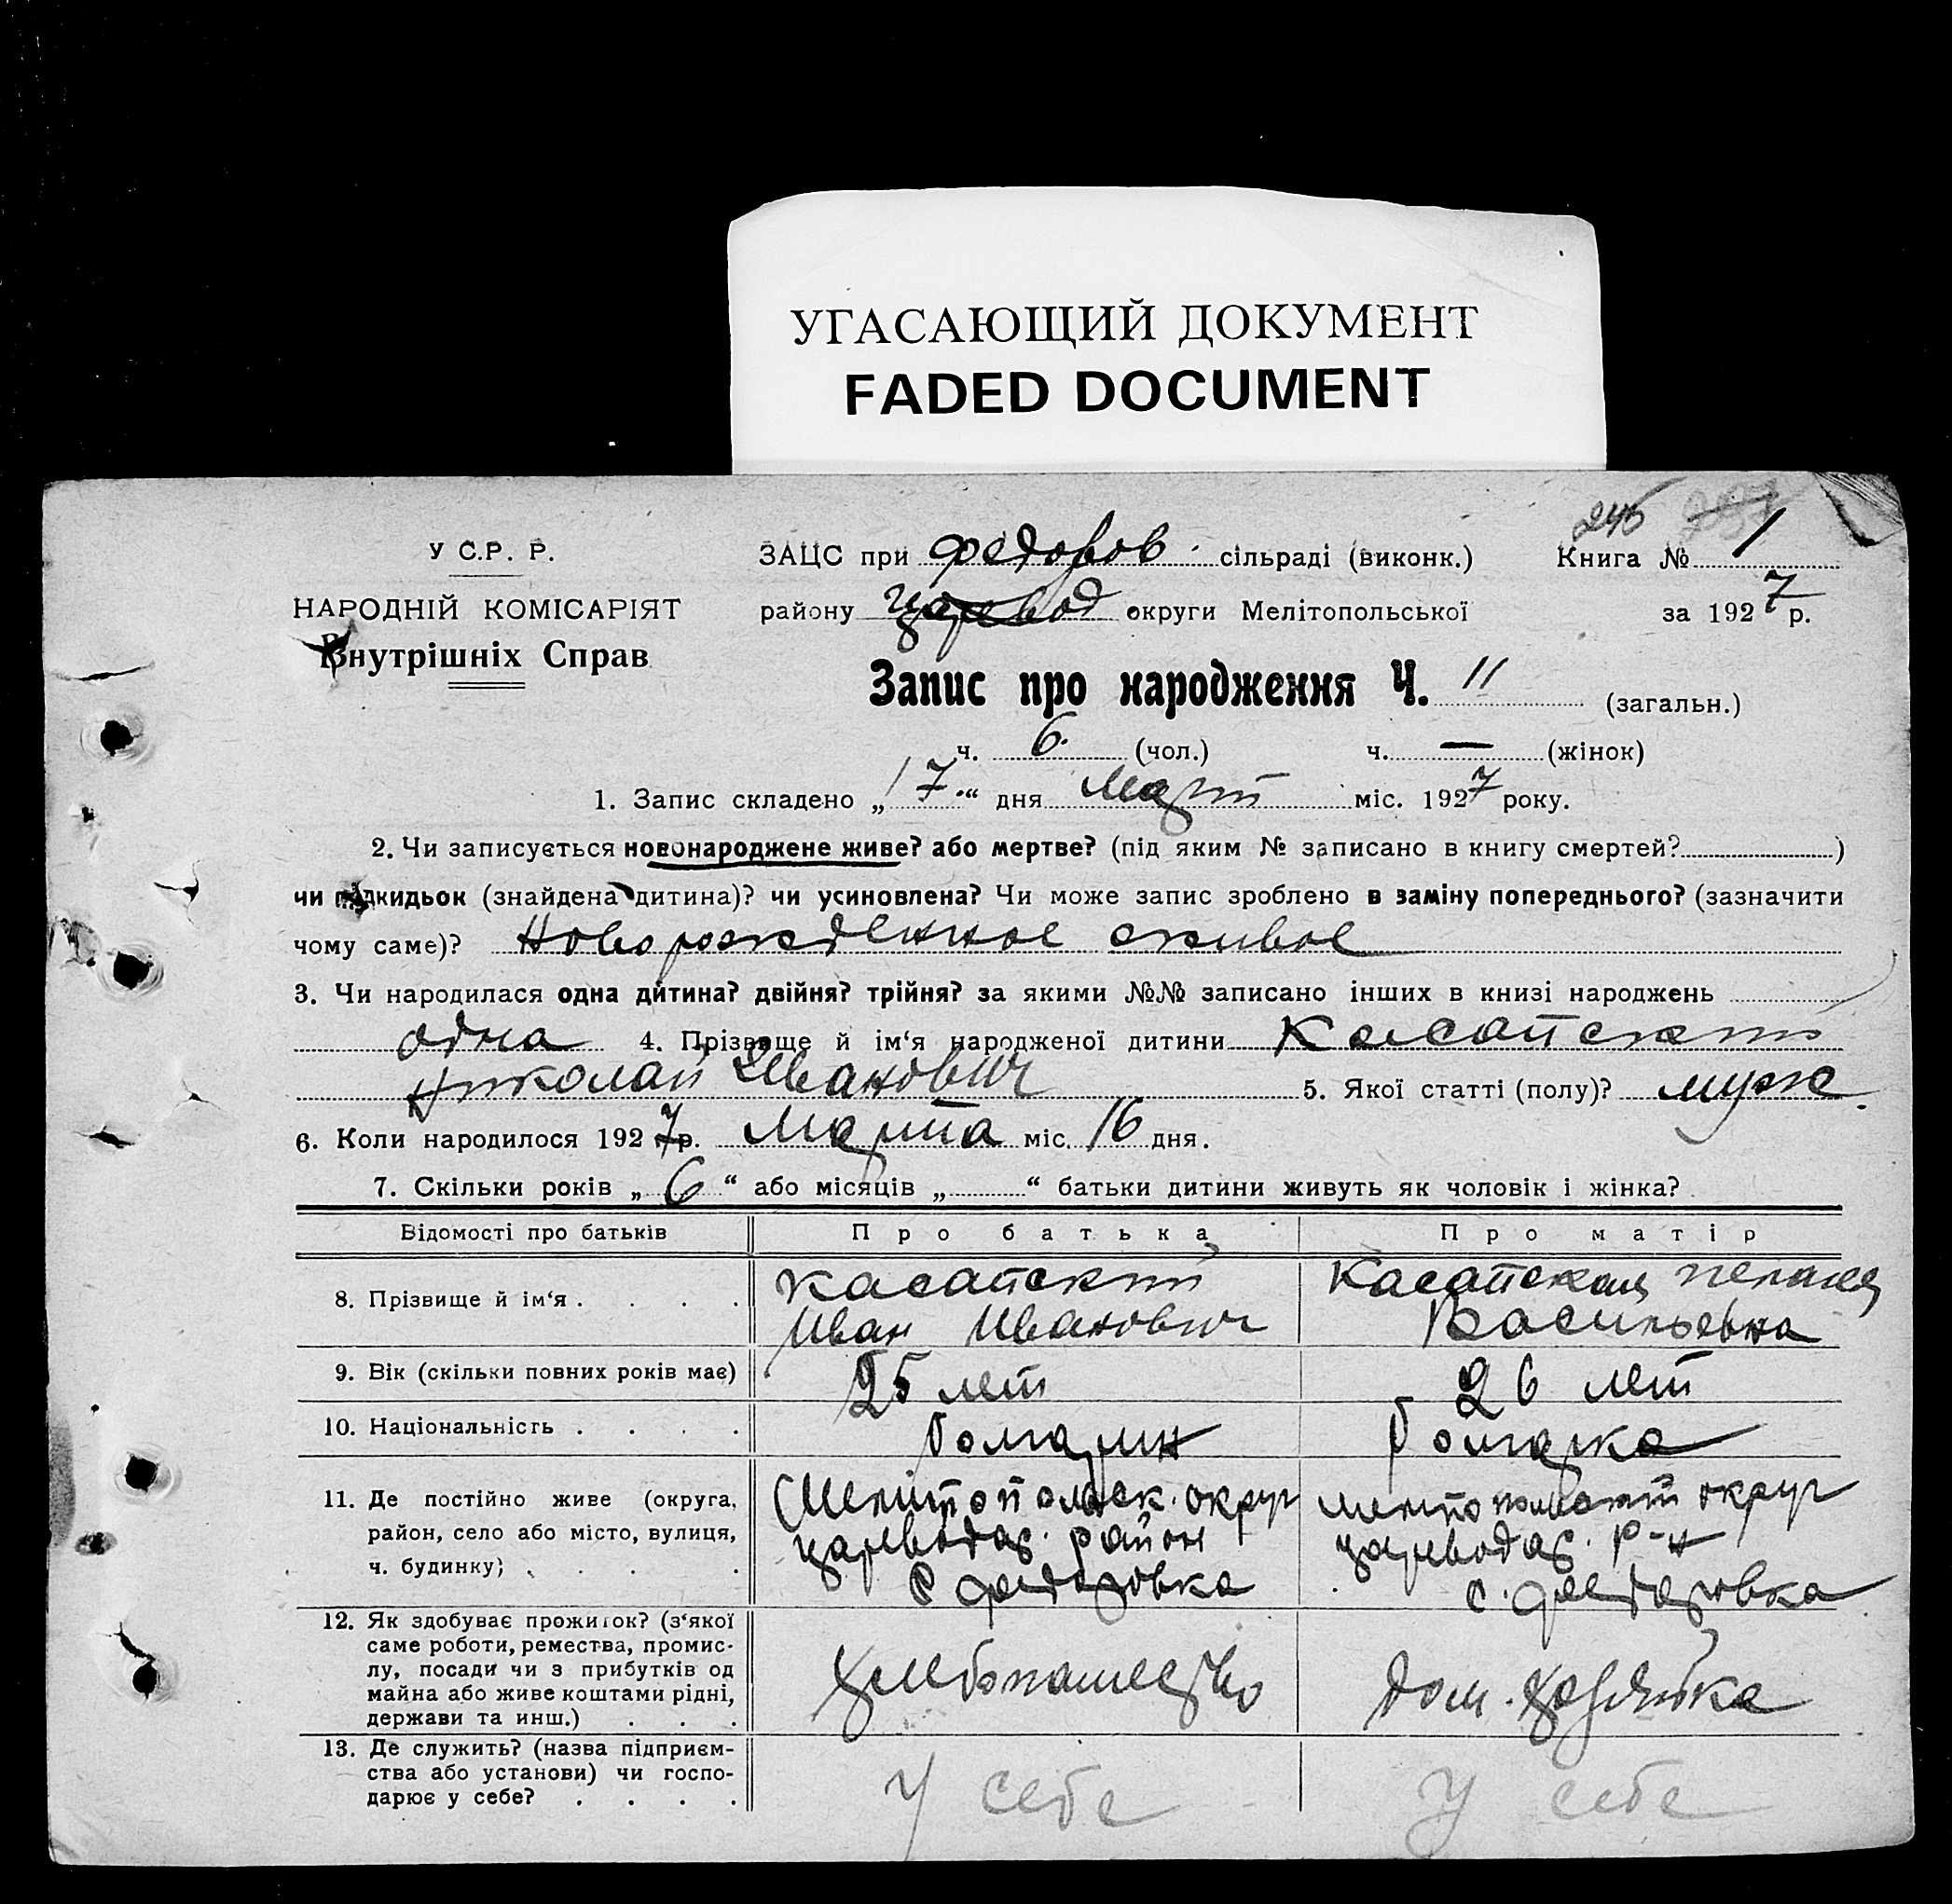 УГАСАЮЩИЙ ДОКУМЕНТ
FADED DOCUMENT
246
У С.Р. Р. ЗАЦС при Федоров. сільраді (виконк.) Книга № 1
НАРОДНІЙ КОМІСАРІЯТ району Царевод округи Мелітопольської за 1927 р.
Внутрішніх Справ
Запис про народження Ч. 11 (загальн.)
ч. 6. (чол.) ч. — (жінок)
1. Запис складено „17.“ дня Март міс. 1927 року.
2. Чи записується новонароджене живе? або мертве? (під яким № записано в книгу смертей? )
чи підкидьок (знайдена дитина)? чи усиновлена? Чи може запис зроблено в заміну попереднього? (зазначити
чому саме)? Новорожденное живое
3. Чи народилася одна дитина? двійня? трійня? за якими №№ записано інших в книзі народжень
одна 4. Прізвище й ім‘я народженої дитини Касапский
Николай Иванович 5. Якої статті (полу)? муж.
6. Коли народилося 1927 р. Марта міс. 16 дня.
7. Скільки років „6“ або місяців „ “ батьки дитини живуть як чоловік і жінка?
Відомості про батьків Про батька Про матір
8. Прізвище й ім‘я . . . . Касапский Касапская Пелагея
Иван Иванович Васильевна
9. Вік (скільки повних років має) 25 лет 26 лет
10. Національність . . . . болгарин болгарка
11. Де постійно живе (округа, Мелитопольск. округ Мелитопольский округ
район, село або місто, вулиця, цареводар. район цареводар. р-н
ч. будинку) . . . . с Федоровка с. Федоровка
12. Як здобуває прожиток? (з‘якої
саме роботи, ремества, промис-
лу, посади чи з прибутків од хлебопашество дом. хозяйка
майна або живе коштами рідні,
держави та инш.) . . .
13. Де служить? (назва підприєм-
ства або установи) чи госпо- у себе у себе
дарює у себе? . . . .